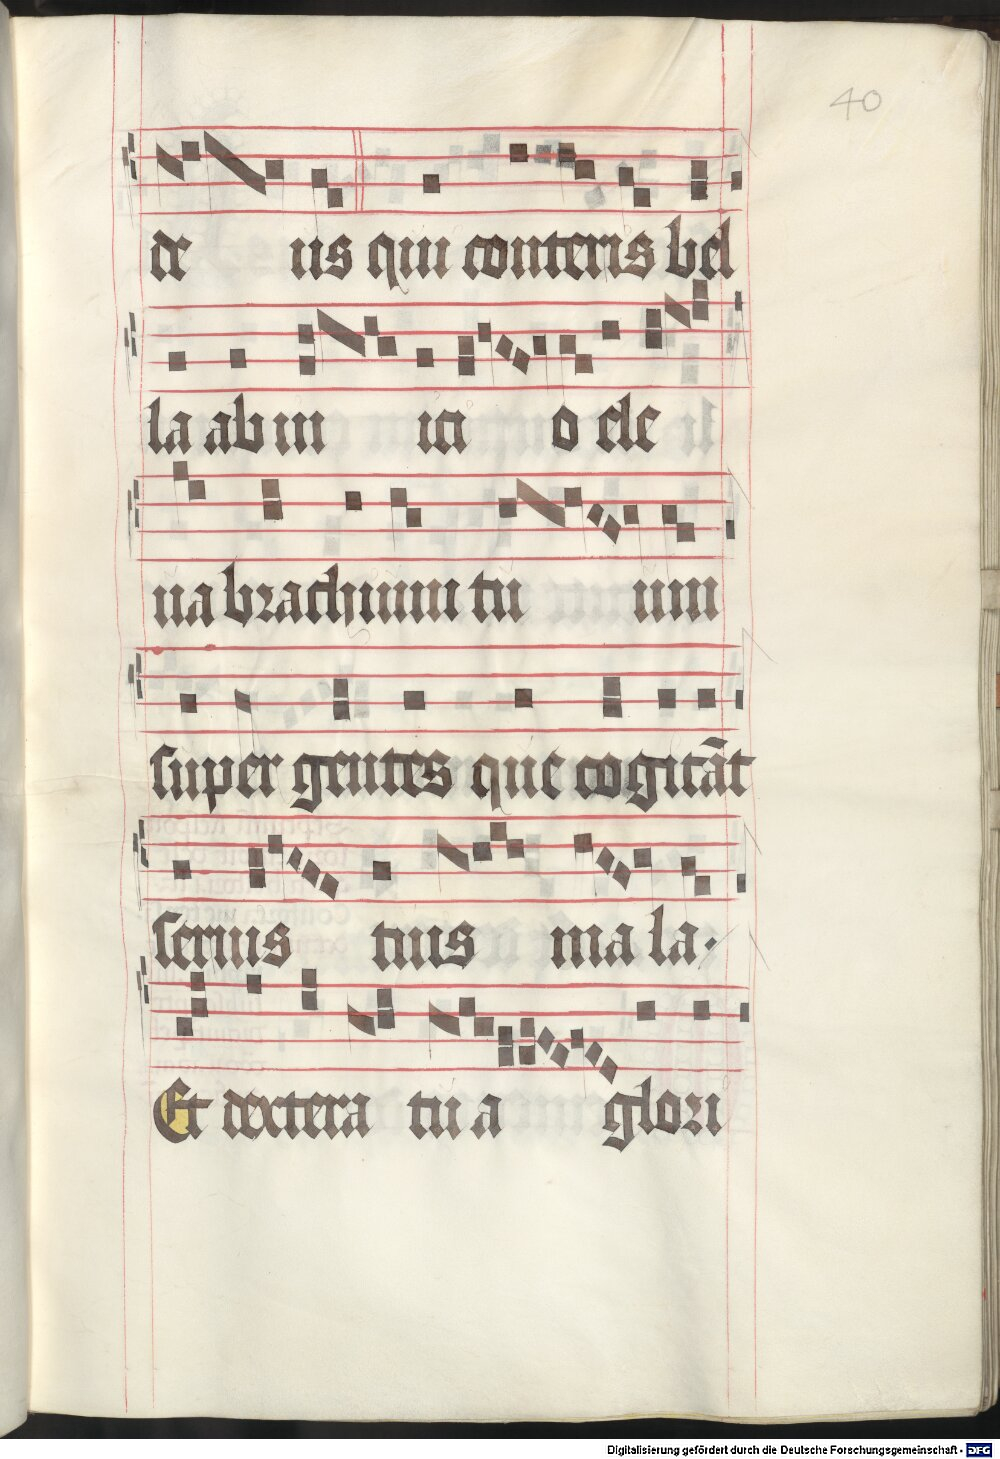 40
de us qui conteris bel
la ab in ici o ele
ua brachium tu um
super gentes que cogitāt
seruis tuis ma la·
Et dextera tu a glori
Digitalisierung gefördert durch die Deutsche Forschungsgemeinschaft - DFG